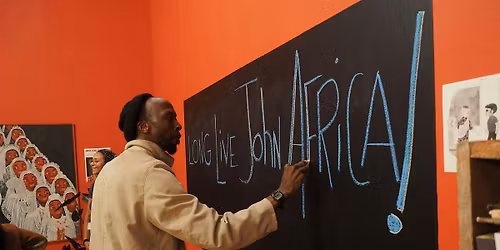 LONG LIVE JOhN AFRiCA!